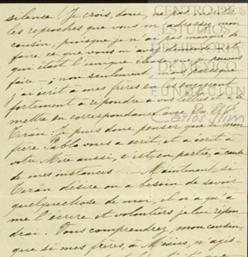 silence! Je crois, donc, ne pas
les reproches que vous m'adressez, mon
cousin, puisque je n'ai pas
faire ce que vous m'avez
qui était l'unique chose que je pouvais
faire; non seulement, mais
j'ai écrit à mes frères
fortement à répondre à vos lettres
mettre en correspondance avec Mr.
Verán: je puis donc penser que mon
père Pablo vous a écrit, et a écrit à
votre Mère aussi, c'est, en partie, à cause
de mes instances. Maintenant, si
Verán désire ou a besoin de savoir
quelquechose de moi, il n'a qu'à
me l'écrire et volontiers je lui répon
drai. Vous comprendrez, mon cousin,
que si mes frères, à
CENTRO DE
ESTUDIOS
FUNDACIÓN